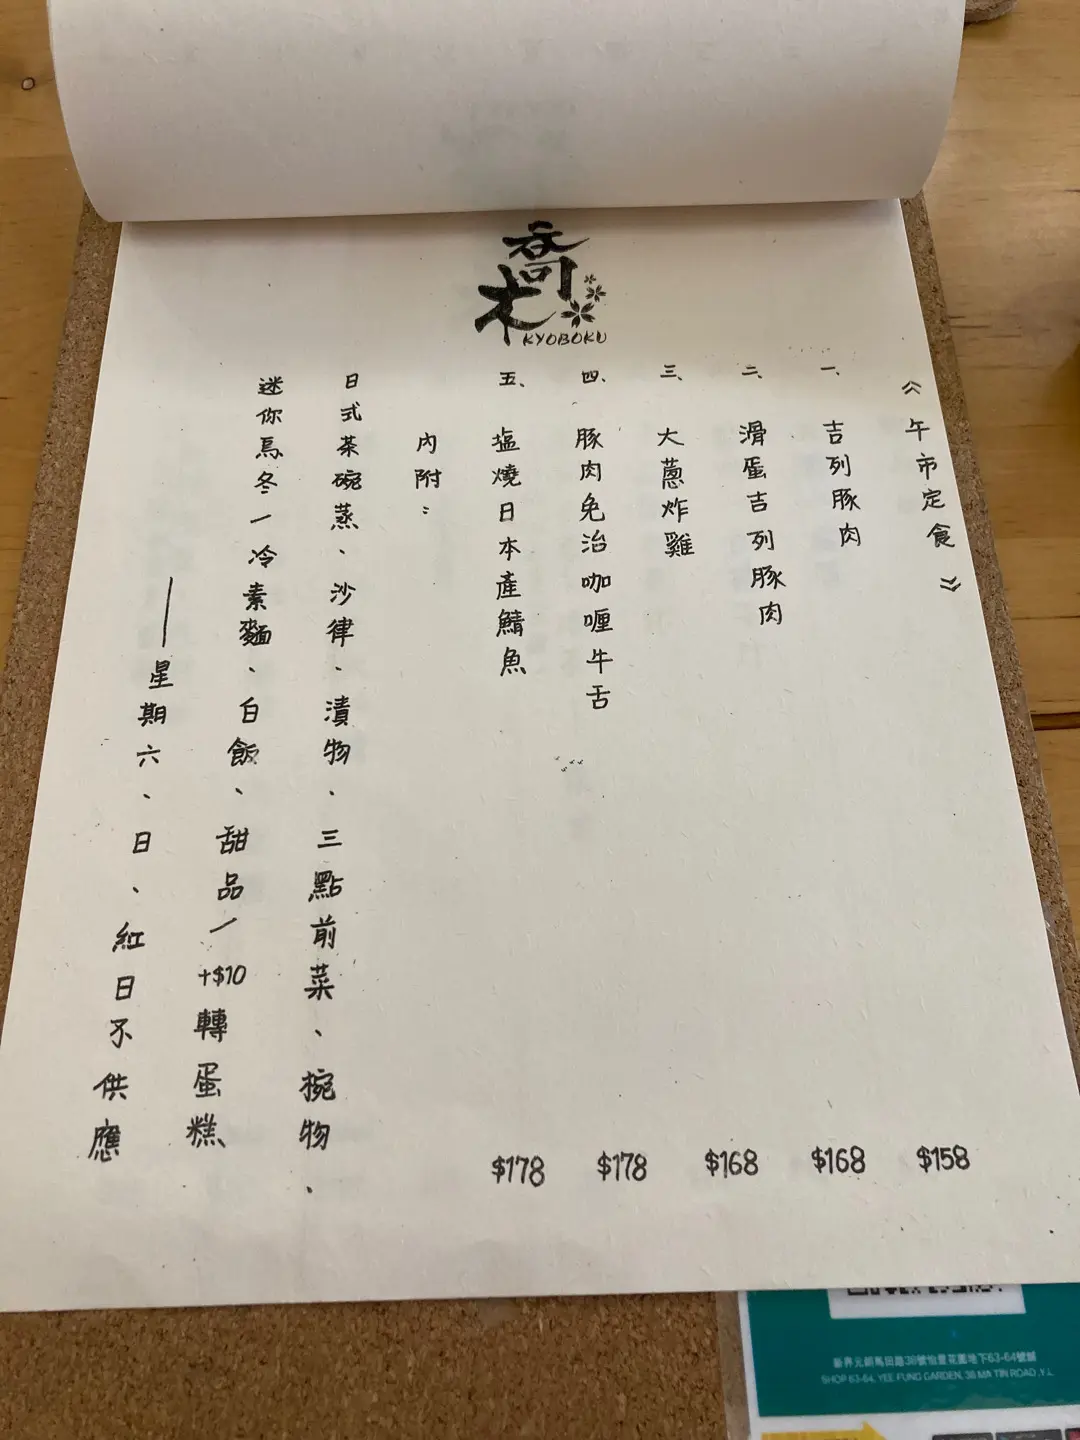 喬木
KYOBOKU
《午市定食》
一、吉列豚肉 $158
二、滑蛋吉列豚肉 $168
三、大蔥炸雞 $168
四、豚肉免治咖喱牛舌 $178
五、塩燒日本產鯖魚 $178
內附：
日式茶碗蒸、沙律、漬物、三點前菜、椀物、
迷你烏冬/冷素麵、白飯、甜品/+$10轉蛋糕、
——星期六、日、紅日不供應
新界元朗馬田路38號怡豐花園地下63-64號舖
SHOP 63-64, YEE FUNG GARDEN, 38 MA TIN ROAD ,Y.L